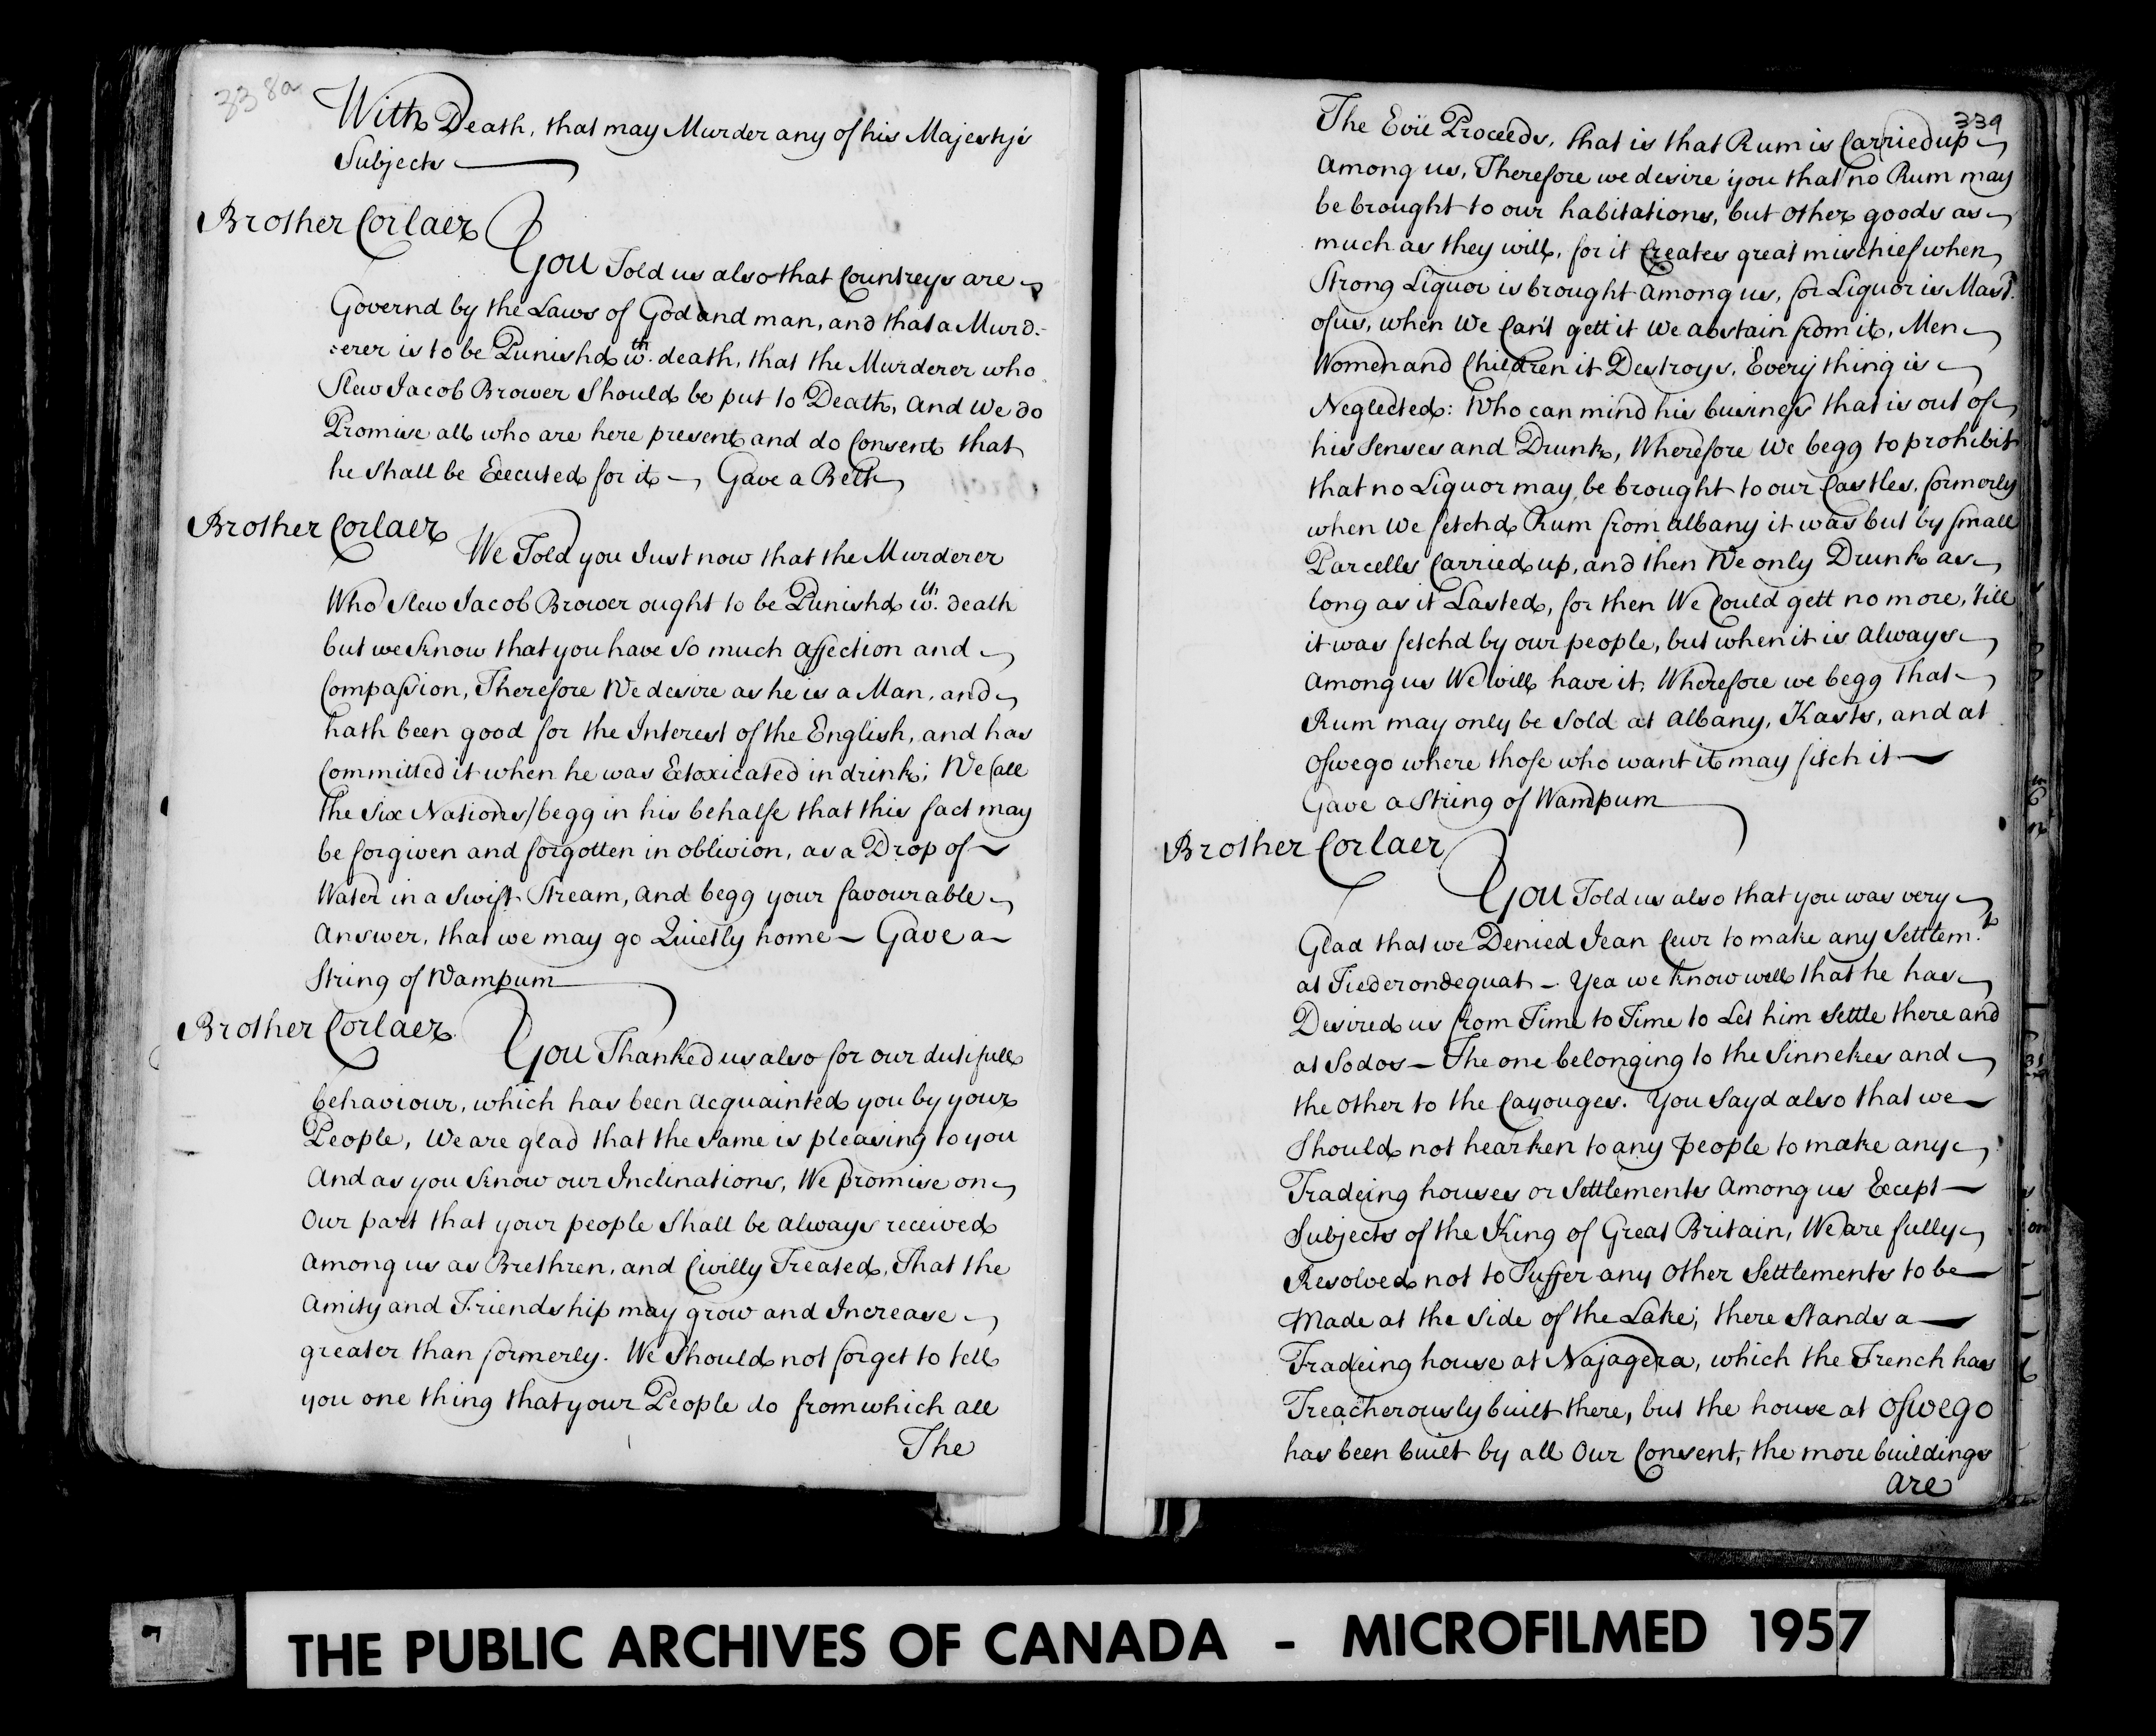 338a
With Death, that may Murder any of his Majesty's
Subjects
Brother Corlaer
You Told us also that Countreys are
Governd by the Laws of God and man, and that a Murd-
:erer is to be Punishd wth. death, that the Murderer who
Slew Jacob Brower Should be put to Death, And We do
Promise all who are here present and do Consent that
he shall be Executed for it — Gave a Belt
Brother Corlaer
We Told you Just now that the Murderer
Who slew Jacob Brower ought to be Punishd wth. death
but we know that you have so much affection and
Compassion, Therefore We desire as he is a Man, and
hath been good for the Interest of the English, and has
Committed it when he was Extoxicated in drink; We (all
the Six Nations) begg in his behalfe that this fact may
be forgiven and forgotten in oblivion, as a Drop of
Water in a Swift Stream, and begg your favourable
Answer, that we may go Quietly home — Gave a
String of Wampum
Brother Corlaer
You Thanked us also for our dutifull
behaviour, which has been acquainted you by your
People, We are glad that the Same is pleasing to you
And as you know our Inclinations, We promise on
Our part that your people shall be always received
among us as Brethren, and Civilly Treated, That the
Amity and Friendship may grow and Increase
greater than formerly. We Should not forget to tell
you one thing that your People do from which all
The
339
The Evil Proceeds, that is that Rum is Carried up
Among us, Therefore we desire you that no Rum may
be brought to our habitations, but other goods as
much as they will, for it Creates great mischief when
Strong Liquor is brought among us, for Liquor is Mastr.
of us, when We Can't gett it We abstain from it, Men
Women and Children it Destroys, Every thing is
Neglected: Who can mind his business that is out of
his Senses and Drunk, Wherefore We begg to prohibit
that no Liquor may be brought to our Castles, formerly
when We fetchd Rum from albany it was but by small
Parcells Carried up, and then We only Drunk as
long as it Lasted, for then We Could gett no more, 'till
it was fetchd by our people, but when it is always
among us We will have it, Wherefore we begg that
Rum may only be Sold at Albany, Kasts, and at
Oswego where those who want it may fitch it
Gave a String of Wampum
Brother Corlaer
You Told us also that you was very
Glad that we Denied Jean Ceur to make any Settlemt.
at Tiederondequat — Yea we know well that he has
Desired us from Time to Time to Let him Settle there and
at Sodos — The one belonging to the Sinnekes and
the other to the Cayouges. You Sayd also that we
Should not hearken to any people to make any
Tradeing houses or Settlements among us Except
Subjects of the King of Great Britain, We are fully
Resolved not to Suffer any other Settlements to be
Made at the Side of the Lake; there Stands a
Tradeing house at Najagera, which the French has
Treacherously built there, but the house at Oswego
has been built by all Our Consent, the more buildings
are
THE PUBLIC ARCHIVES OF CANADA - MICROFILMED 1957